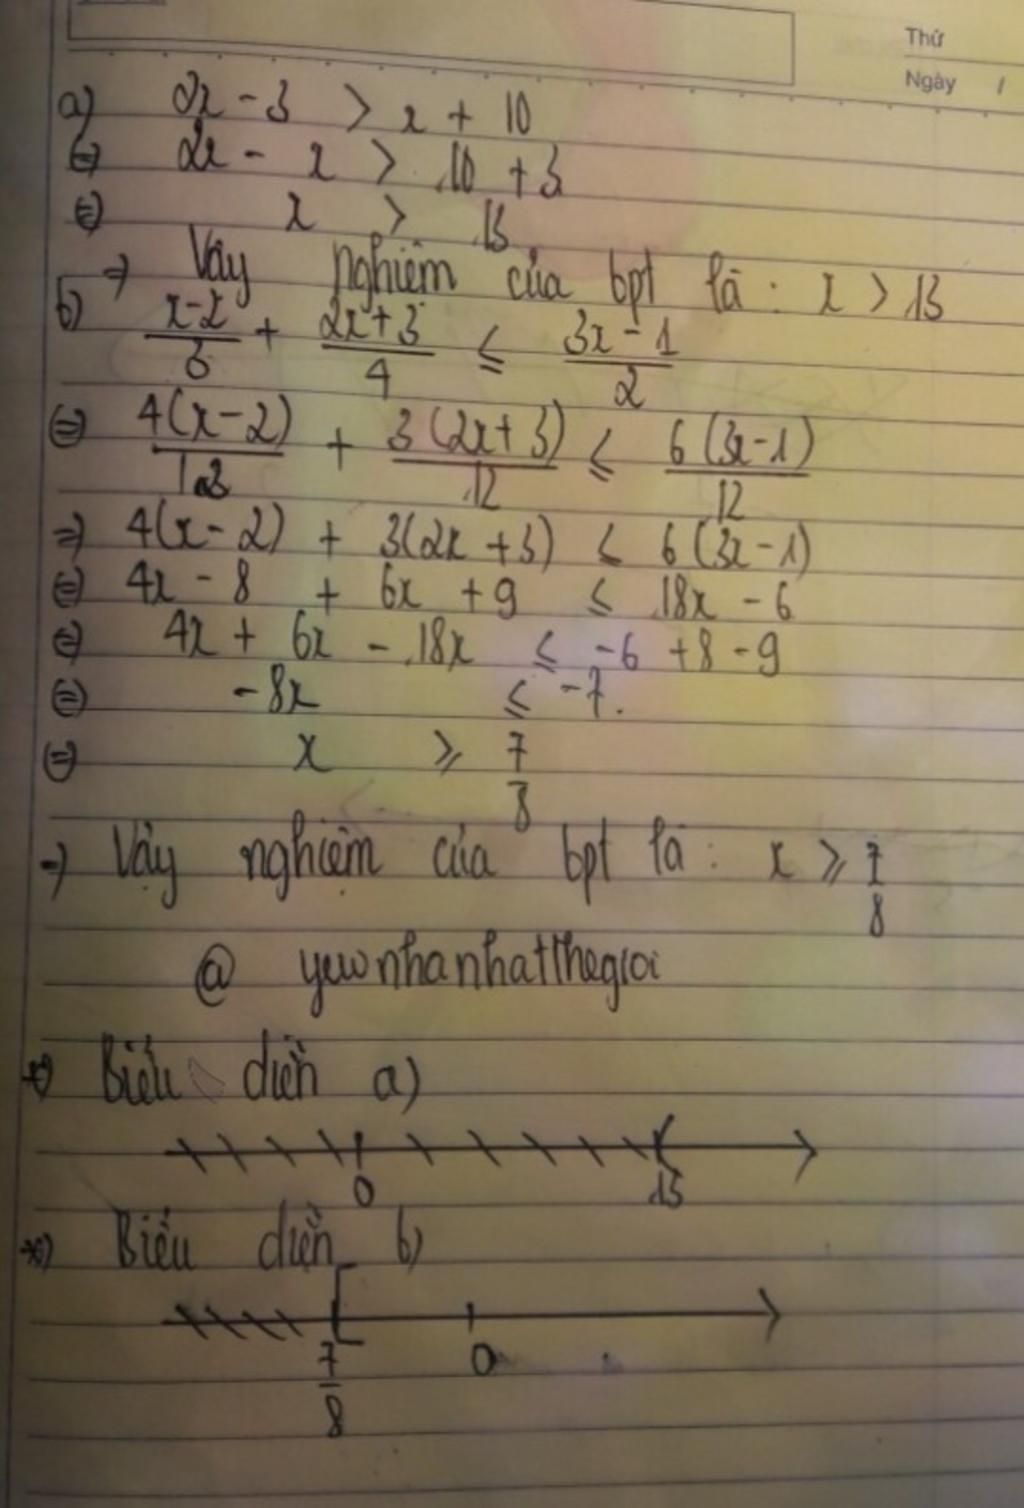 Thứ
Ngày /
a) 2x - 3 > x + 10
⇔ 2x - x > 10 + 3
⇔ x > 13
⇒ Vậy nghiệm của bpt là : x > 13
b) (x-2)/3 + (2x+3)/4 ≤ (3x-1)/2
⇔ 4(x-2)/12 + 3(2x+3)/12 ≤ 6(3x-1)/12
⇒ 4(x-2) + 3(2x+3) ≤ 6(3x-1)
⇔ 4x - 8 + 6x + 9 ≤ 18x - 6
⇔ 4x + 6x - 18x ≤ -6 + 8 - 9
⇔ -8x ≤ -7.
⇔ x ≥ 7/8
⇒ Vậy nghiệm của bpt là : x ≥ 7/8
@ yewnhanhatthegioi
*) Biểu diễn a)
0 13
*) Biểu diễn b)
7/8 0